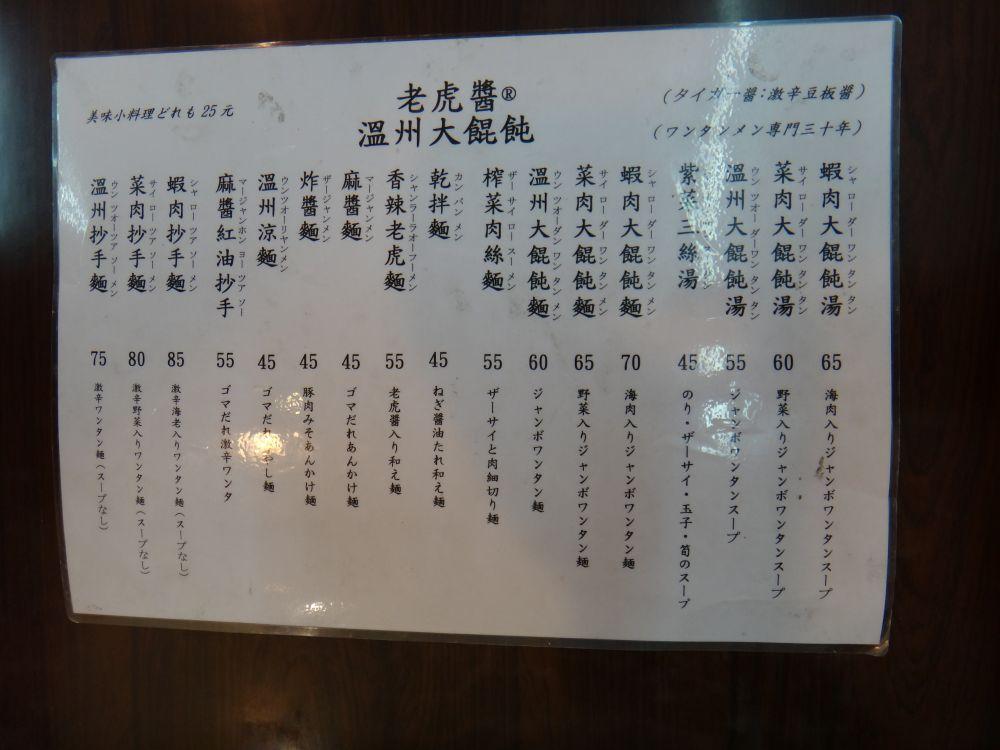 老虎醬®
溫州大餛飩
(タイガー醬:激辛豆板醬)
(ワンタンメン専門三十年)
美味小料理どれも25元
蝦肉大餛飩湯
シャローダーワンタンタン
65
海肉入りジャンボワンタンスープ
菜肉大餛飩湯
サイローダーワンタンタン
60
野菜入りジャンボワンタンスープ
溫州大餛飩湯
ウンツオーダーワンタンタン
55
ジャンボワンタンスープ
紫菜三絲湯
45
のり・ザーサイ・玉子・筍のスープ
蝦肉大餛飩麵
シャローダーワンタンメン
70
海肉入りジャンボワンタン麺
菜肉大餛飩麵
サイローダーワンタンメン
65
野菜入りジャンボワンタン麺
溫州大餛飩麵
ウンツオーダンワンタンメン
60
ジャンボワンタン麺
榨菜肉絲麵
ザーサイロースーメン
55
ザーサイと肉細切り麺
乾拌麵
カンバンメン
45
ねぎ醬油たれ和え麺
香辣老虎麵
シャンラーラオフーメン
55
老虎醬入り和え麺
麻醬麵
マージャンメン
45
ゴマだれあんかけ麺
炸醬麵
ザージャンメン
45
豚肉みそあんかけ麺
溫州涼麵
ウンツオーリャンメン
45
ゴマだれ やし麺
麻醬紅油抄手
マージャンホンヨーツアソー
55
ゴマだれ激辛ワンタ
蝦肉抄手麵
シャローツアソーメン
85
激辛海老入りワンタン麺(スープなし)
菜肉抄手麵
サイローツアソーメン
80
激辛野菜入りワンタン麺(スープなし)
溫州抄手麵
ウンツオーツアソーメン
75
激辛ワンタン麺(スープなし)